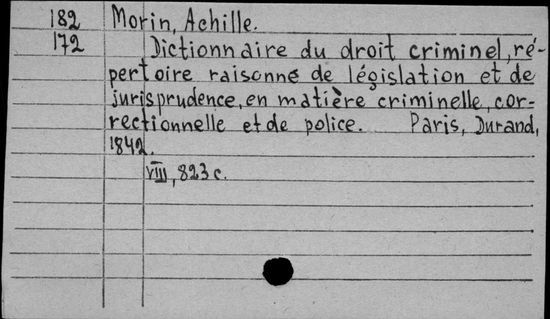 182 Morin, Achille.
172 Dictionnaire du droit criminel, ré-
pertoire raisonné de législation et de
jurisprudence, en matière criminelle, cor-
rectionnelle et de police. Paris, Durand,
1842.
VIII, 823 c.